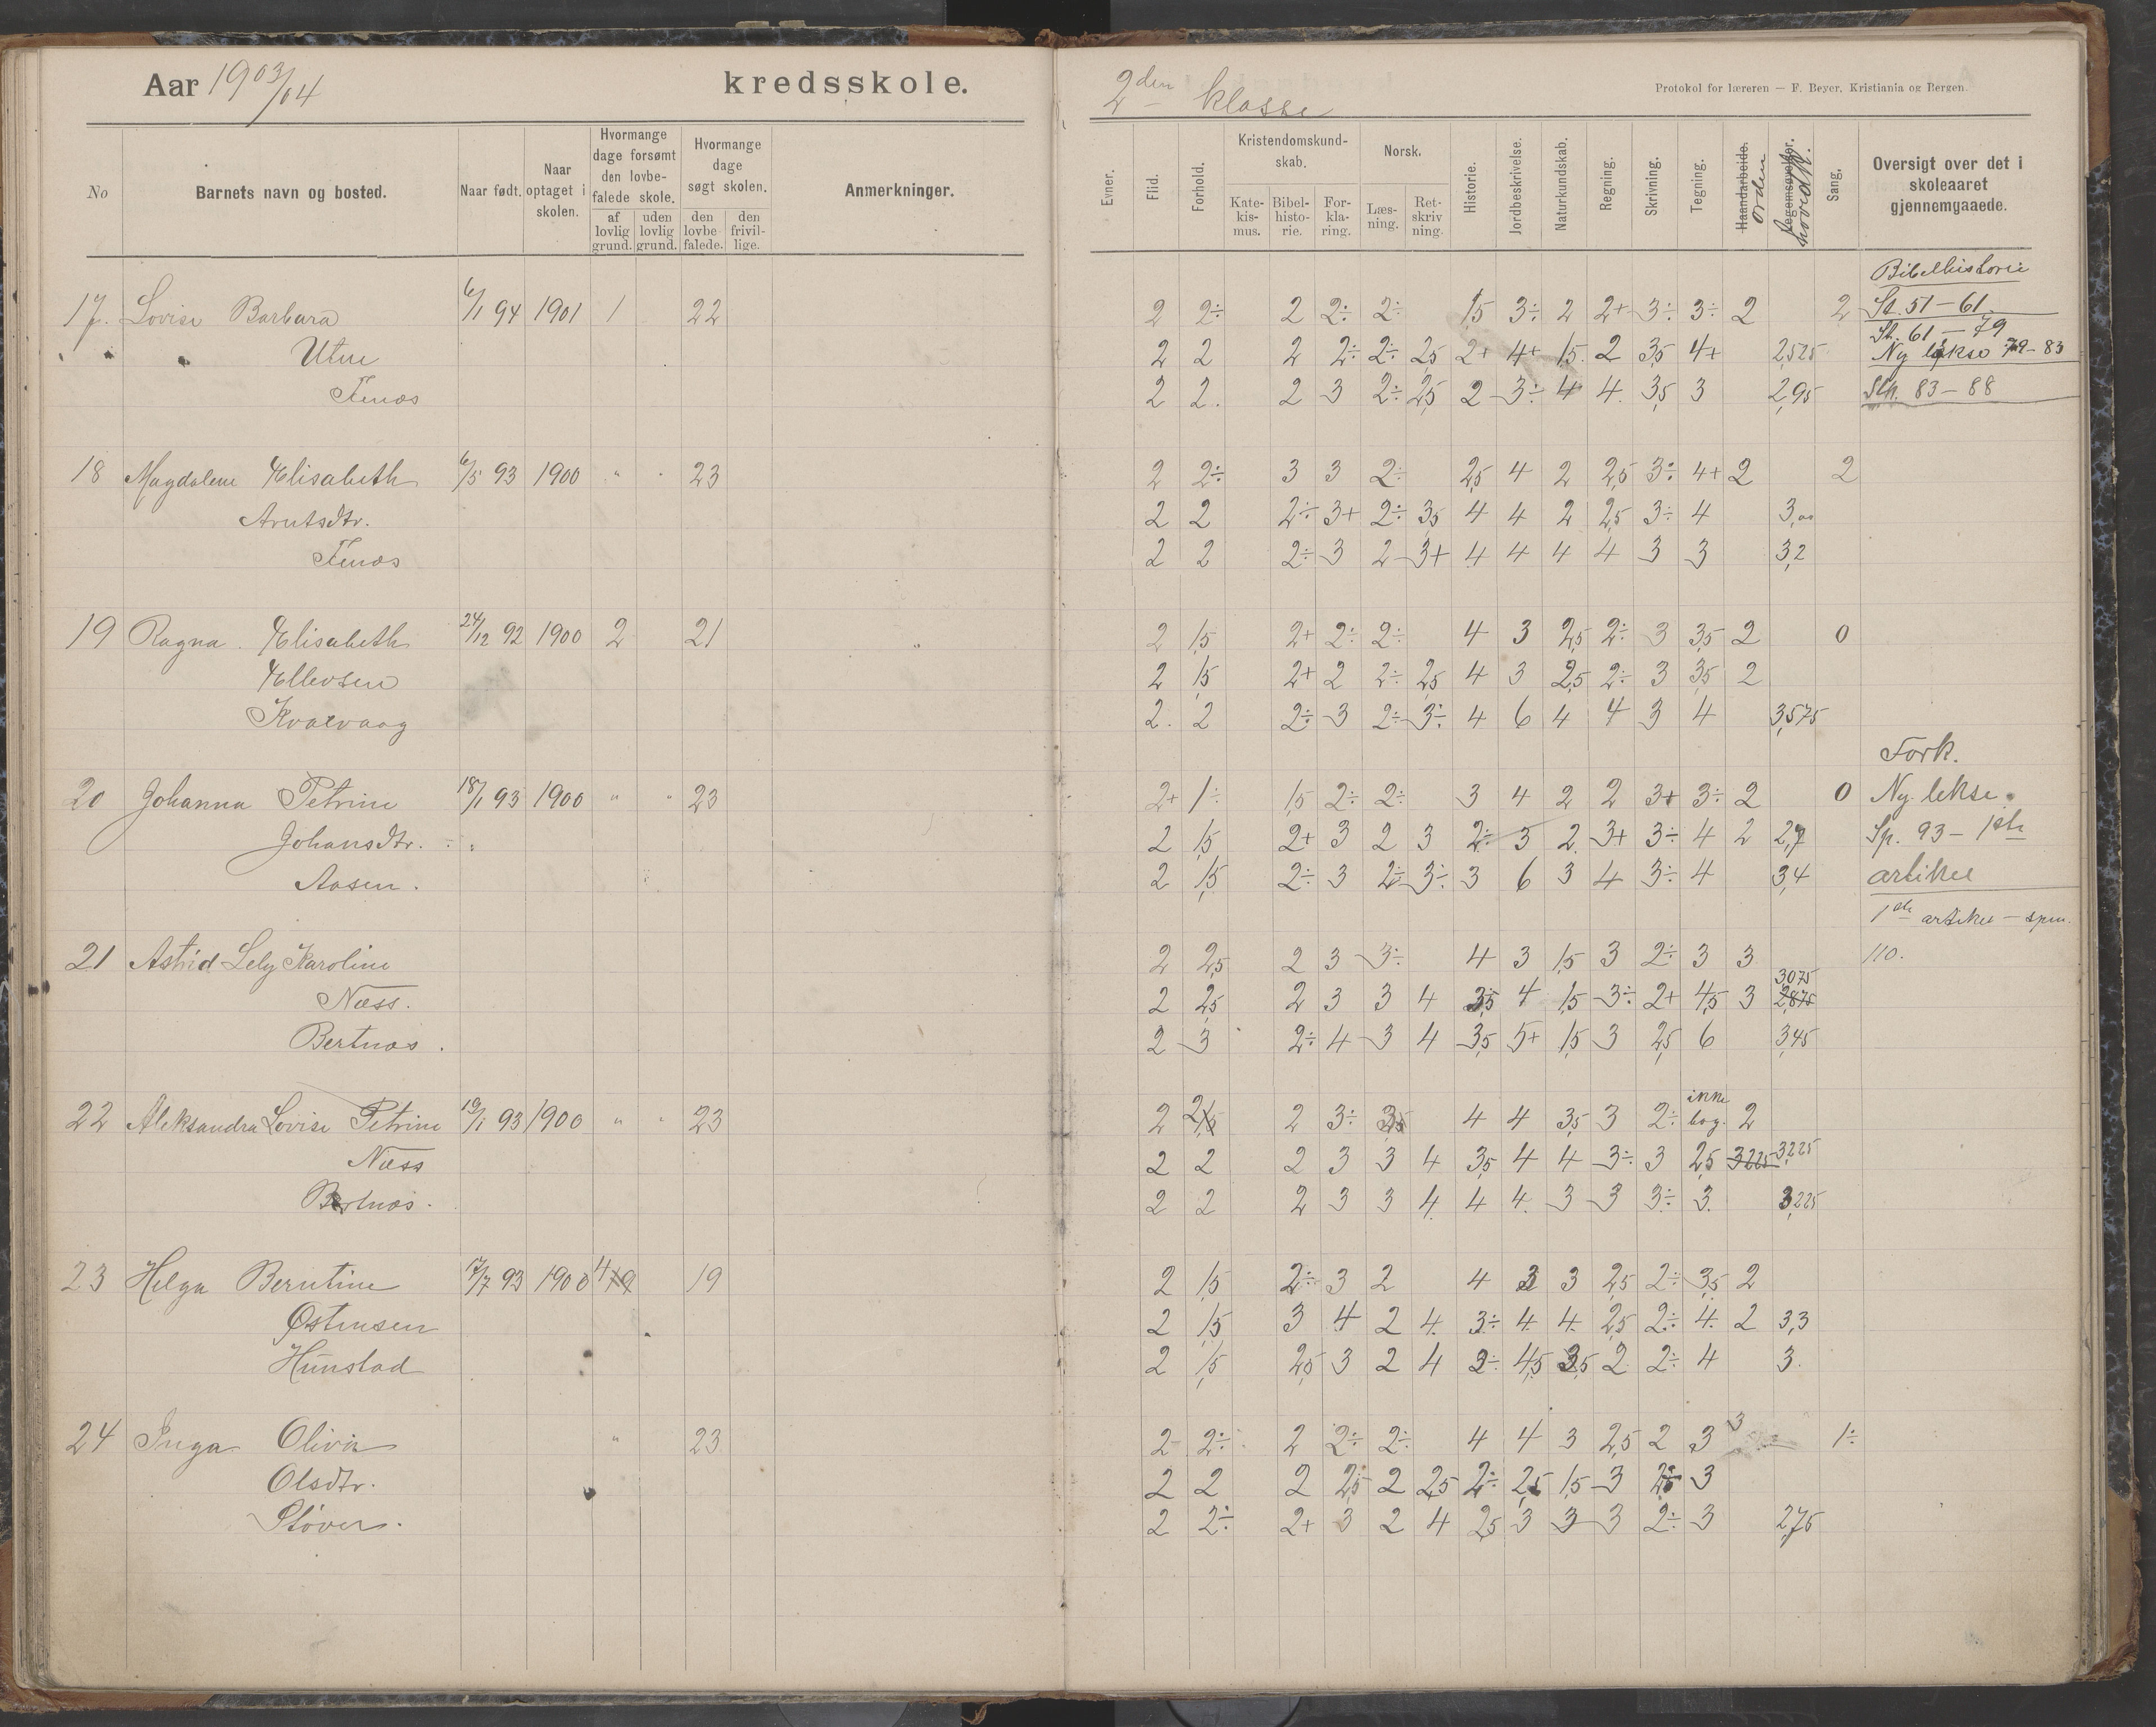 Aar 1903/04 kredsskole.
No
Barnets navn og bosted.
Naar født.
Naar optaget i skolen.
Hvormange dage forsømt den lovbe-falede skole.
af lovlig grund.
uden lovlig grund.
Hvormange dage søgt skolen.
den lovbe falede.
den frivil-lige.
Anmerkninger.
17. Lovise Barbara 6/1 94 1901 1 22
Utne
Fenes
18 Magdalene Elisabeth 6/5 93 1900 " " 23
Arntsdtr.
Fenes
19 Ragna Elisabeth 24/12 92 1900 2 21
Ellevsen
Kvalvaag
20 Johanna Petrine 18/1 93 1900 " " 23
Johansdtr.
Aasen.
21 Astrid Lely Karoline
Næss.
Bertnæs.
22 Aleksandra Lovise Petrine 19/1 93 1900 " " 23
Næss
Bertnæs.
23 Helga Berntine 17/7 93 1900 4 19
Østensen
Hunstad
24 Inga Olivia " 23
Olsdtr.
Støver.
2den klasse
Protokol for læreren — F. Beyer, Kristiania og Bergen.
Evner.
Flid.
Forhold.
Kristendomskund-skab.
Kate-kis-mus.
Bibel-histo-rie.
For-kla-ring.
Norsk.
Læs-ning.
Ret-skriv ning.
Historie.
Jordbeskrivelse.
Naturkundskab.
Regning.
Skrivning.
Tegning.
Haandarbeide.
Orden
Legemsøvelser.
hovedk.
Sang.
Oversigt over det i skoleaaret gjennemgaaede.
Bibelhistorie
2 2÷ 2 2÷ 2÷ 1,5 3÷ 2 2+ 3÷ 3÷ 2 2 St. 51-61
St. 61-79
2 2 2 2÷ 2÷ 2,5 2+ 4+ 1,5 2 3,5 4+ 2,525 Ny lekse 79-83
2 2. 2 3 2÷ 2,5 2 3÷ 4 4. 3,5 3 2,95 Stk. 83-88
2 2÷ 3 3 2÷ 2,5 4 2 2,5 3÷ 4+ 2 2
2 2 2÷ 3+ 2÷ 3,5 4 4 2 2,5 3÷ 4 3,00
2 2 2÷ 3 2 3+ 4 4 4 4 3 3 3,2
2 1,5 2+ 2÷ 2÷ 4 3 2,5 2÷ 3 3,5 2 0
2 1,5 2+ 2 2÷ 2,5 4 3 2,5 2÷ 3 3,5 2
2. 2 2÷ 3 2÷ 3÷ 4 6 4 4 3 4 3,575
Fork.
2+ 1÷ 1,5 2÷ 2÷ 3 4 2 2 3+ 3÷ 2 0 Ny lekse.
2 1,5 2+ 3 2 3 2÷ 3 2 3+ 3÷ 4 2 2,7 Sp. 93 - 1ste
2 1,5 2÷ 3 2÷ 3÷ 3 6 3 4 3÷ 4 3,4 artikel
1ste artikel - spm.
2 2,5 2 3 3÷ 4 3 1,5 3 2÷ 3 3 110.
3,075
2 2,5 2 3 3 4 3,5 4 1,5 3÷ 2+ 4,5 3 2,875
2 3 2÷ 4 3 4 3,5 5+ 1,5 3 2,5 6 3,45
2 2 2 3÷ 4 4 3,5 3 2÷ ikke bog. 2
2 2 2 3 3 4 3,5 4 4 3÷ 3 2,5 3,225 3,225
2 2 2 3 3 4 4 4 3 3 3÷ 3 3,225
2 1,5 2÷ 3 2 4 3 3 2,5 2÷ 3,5 2
2 1,5 3 4 2 4 3÷ 4 4 2,5 2÷ 4 2 3,3
2 1,5 2,5 3 2 4 2÷ 4,5 3,5 2 2÷ 4 3.
2 2÷ 2 2÷ 2÷ 4 4 3 2,5 2 3 3 1÷
2 2 2 2,5 2 2,5 2÷ 2,5 1,5 3 2,5 3
2 2÷ 2+ 3 2 4 2,5 3 3 3 2÷ 3 2,75